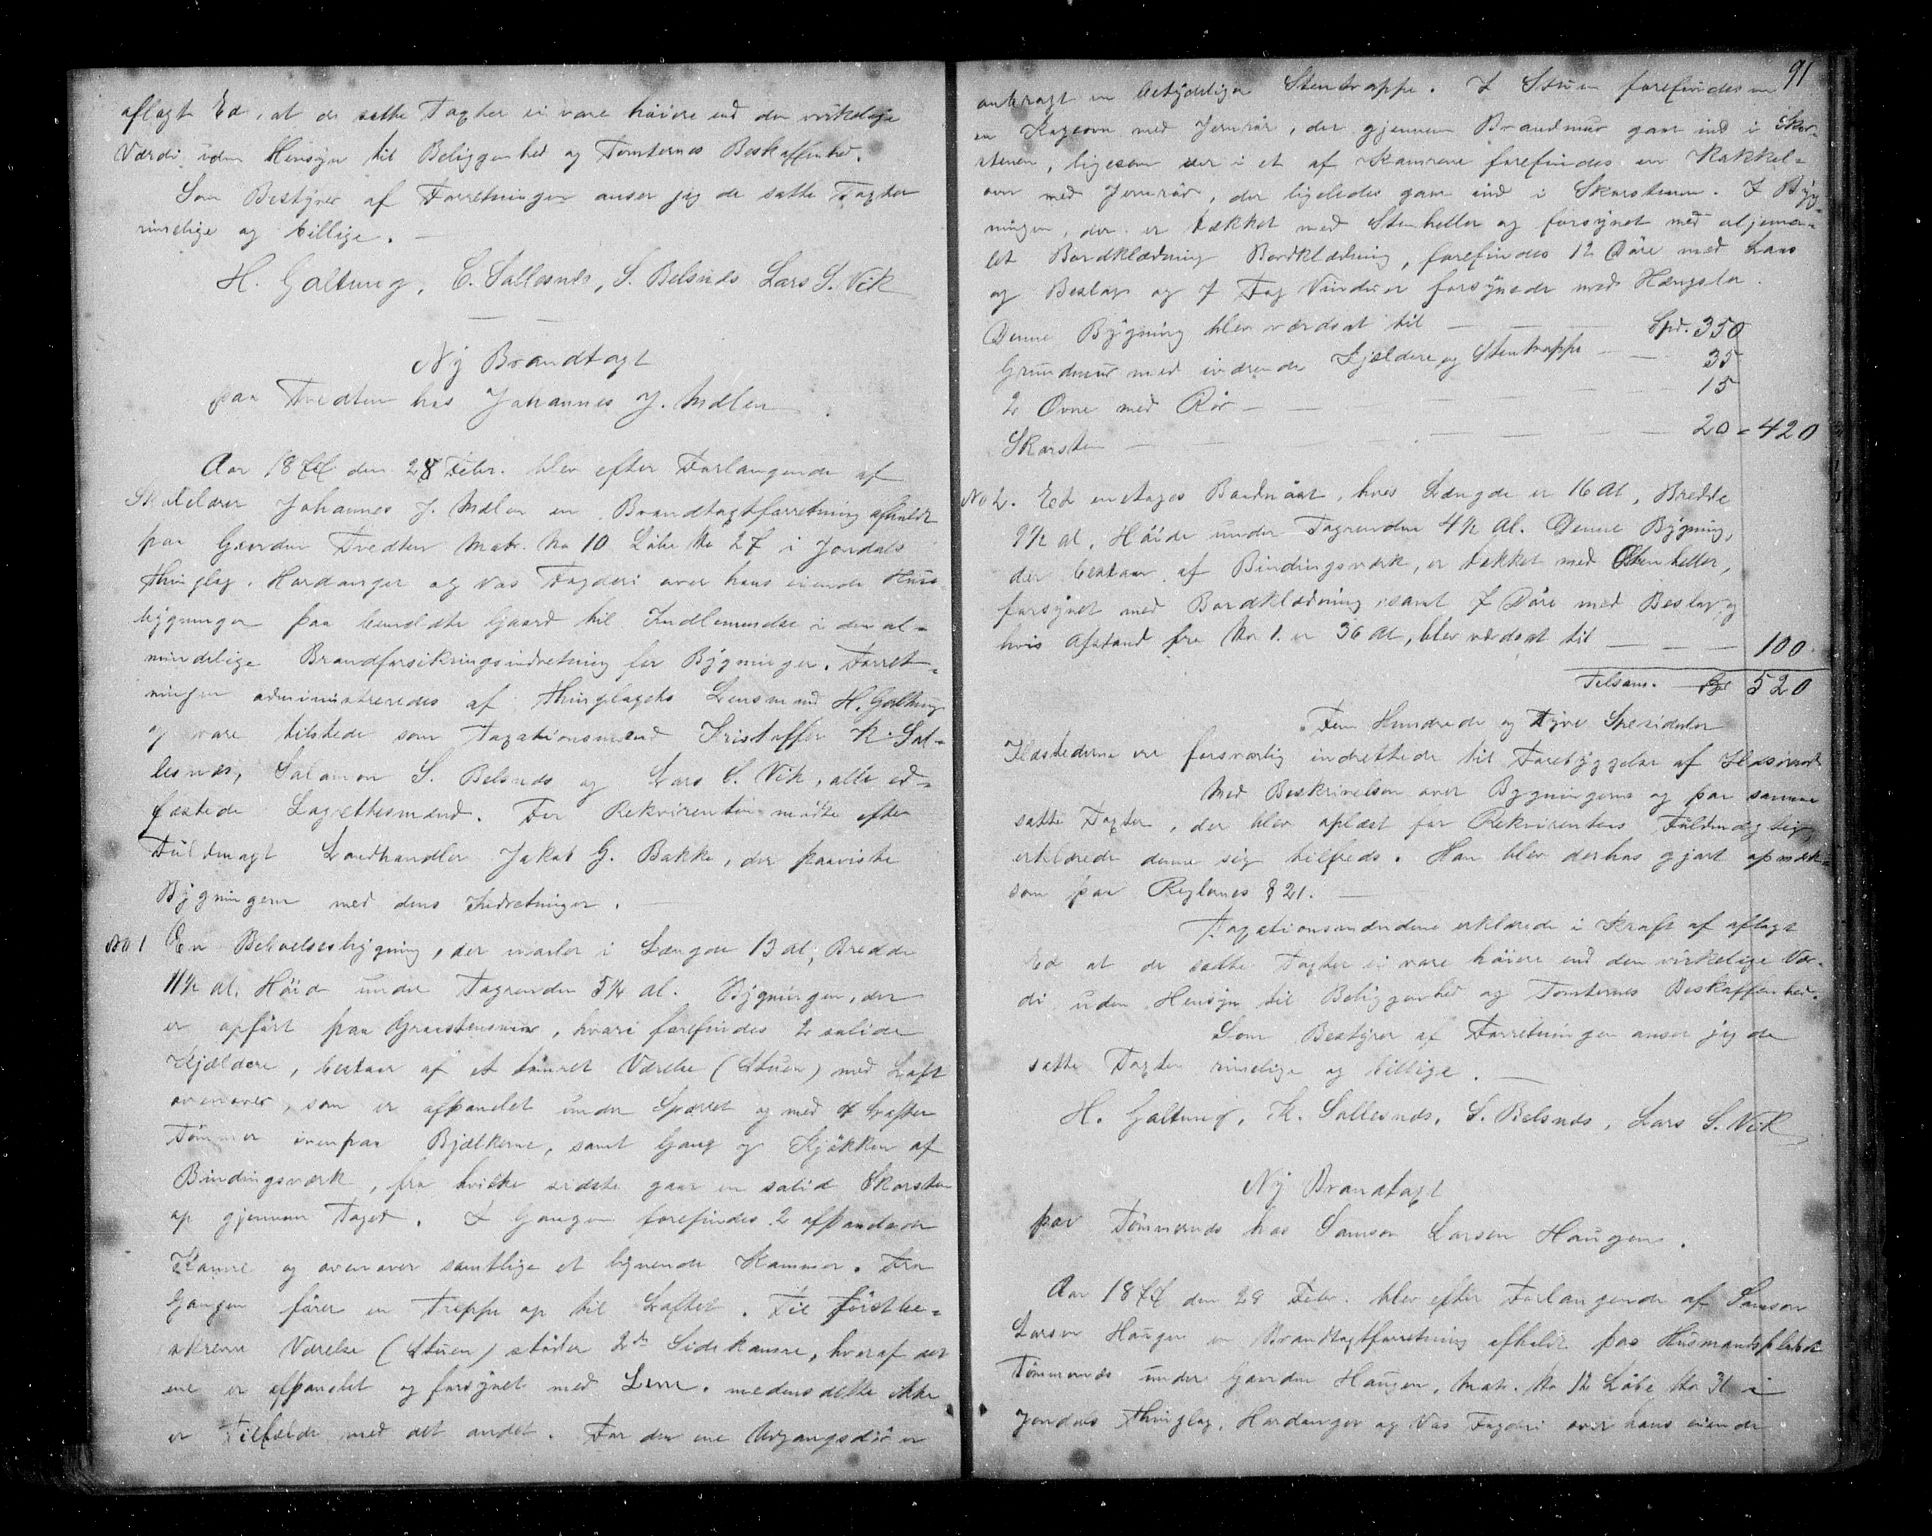 aflagt Ed, at de satte Taxter ei vare høiere end den virkelige
Værdi uden Hensyn til Beliggenhed og Tomternes Beskaffenhed.
Som Bestyrer af Forretningen anser jeg de satte Taxter
rimelige og billige. —
H. Galtung, C. Sallesnæs, S. Belsnæs Lars S. Vik
Ny Brandtaxt
paa Tvedten hos Johannes J. Mælen
Aar 1877 den 28 Febr. blev efter Forlangende af
Johannes J. Mælen en Brandtaxtforretning afholdt
paa Gaarden Tvedten Matr. No 10 Løbe No 27 i Jondals
Thinglag, Hardanger og Vos Fogderi over hans eiende Huse
bygninger paa bemeldte Gaard til Indlemmelse i den al-
mindelige Brandforsikringsindretning for Bygninger. Forret-
ningen administreredes af Thinglagets Lensmand H. Galtung
og vare tilstede som Taxationsmænd Kristoffer K. Sal-
lesnæs, Salamon S. Belsnæs og Lars S. Vik, alle ed-
fæstede Lagrettesmænd. For Rekvirenten mødte efter
Fuldmagt Landhandler Jakob G. Bakke, der paaviste
Bygningerne med dens Indretninger. —
No 1 En Beboelsesbygning, der maaler i Længde 13 Al, Bredde
11½ Al, Høide under Tagrenden 5¼ Al. Bygningen, der
er opført paa Graastensmur, hvori forefindes 2 solide
Kjældere, bestaar af et tømret Værelse (Stuen) med Loft
ovenover, som er afpanelet under Sparret og med 4 Tofter
Tømmer ovenpaa Bjælkerne, samt Gang og Kjøkken af
Bindingsværk, fra hvilke sidste gaar en solid Skorsten
op gjennem Taget. I Gangen forefindes 2 afpanelede
Kamre og ovenover samtlige et lignende Kammer. Fra
Gangen fører en Trappe op til Loftet. Til førstbe-
skrevne Værelse (Stuen) støder 2de Sidekamre, hvoraf det
ene er afpanelet og forsynet med , medens dette ikke
er Tilfælde med det andet. For den ene Udgangsdør er
91
anbragt en betydelig Stentrappe. I Stuen forefindes
en Kogeovn med Jernrør, der gjennem Brandmur gaar ind i Skor-
stenen, ligesom der i et af Kamrene forefindes en Kakkel-
ovn med Jernrør, der ligeledes gaar ind i Skorstenen. I Byg-
ningen, der er tækket med Stenheller og forsynet med oljema-
let Bordklædning Bordklædning, forefindes 12 Døre med Laas
og Beslag og 7 Fag Vinduer forsynede med Hængsler.
Denne Bygning blev værdsat til — — — Spd. 350
Grundmur med indrende Kjældere og Stentrappe — — 35
2 Ovne med Rør — — — — — 15
Skorsten — — — — — 20 - 420
No 2. Et enetages Baadnøst, hvis Længde er 16 Al, Bredde
9½ Al, Høide under Tagrenden 4½ Al. Denne Bygning,
der bestaar af Bindingsværk, er tækket med Stenheller,
forsynet med Bordklædning samt 7 Døre med Beslag, og
hvis Afstand fra No 1. er 36 Al, blev værdsat til — — — 100
Tilsam. 520
Fem Hundrede og Tyve Speciedaler
Ildstederne ere forsvarlig indrettede til Forebyggelse af Ildsvaade
Med Beskrivelsen over Bygningerne og paa samme
satte Taxter, der blev oplæst for Rekvirentens Fuldmægtig,
erklærede denne sig tilfreds. Han blev derhos gjort opmærk-
som paa Reglernes § 21. —
Taxationsmændene erklærede i Kraft af aflagt
Ed at de satte Taxter ei vare høiere end den virkelige Vær-
di uden Hensyn til Beliggenhed og Tomternes Beskaffenhed.
Som Bestyrer af Forretningen anser jeg de
satte Taxter rimelige og billige. —
H. Galtung, K. Sallesnæs, S. Belsnæs, Lars S. Vik
Ny Brandtaxt
paa Tømmernæs hos Samson Larsen Haugen.
Aar 1877 den 28 Febr. blev efter Forlangende af Samson
Larsen Haugen en Brandtaxtforretning afholdt paa Husmandspladsen
Tømmernæs under Gaarden Haugen, Matr. No 12 Løbe No 31 i
Jondals Thinglag, Hardanger og Vos Fogderi over hans eiende